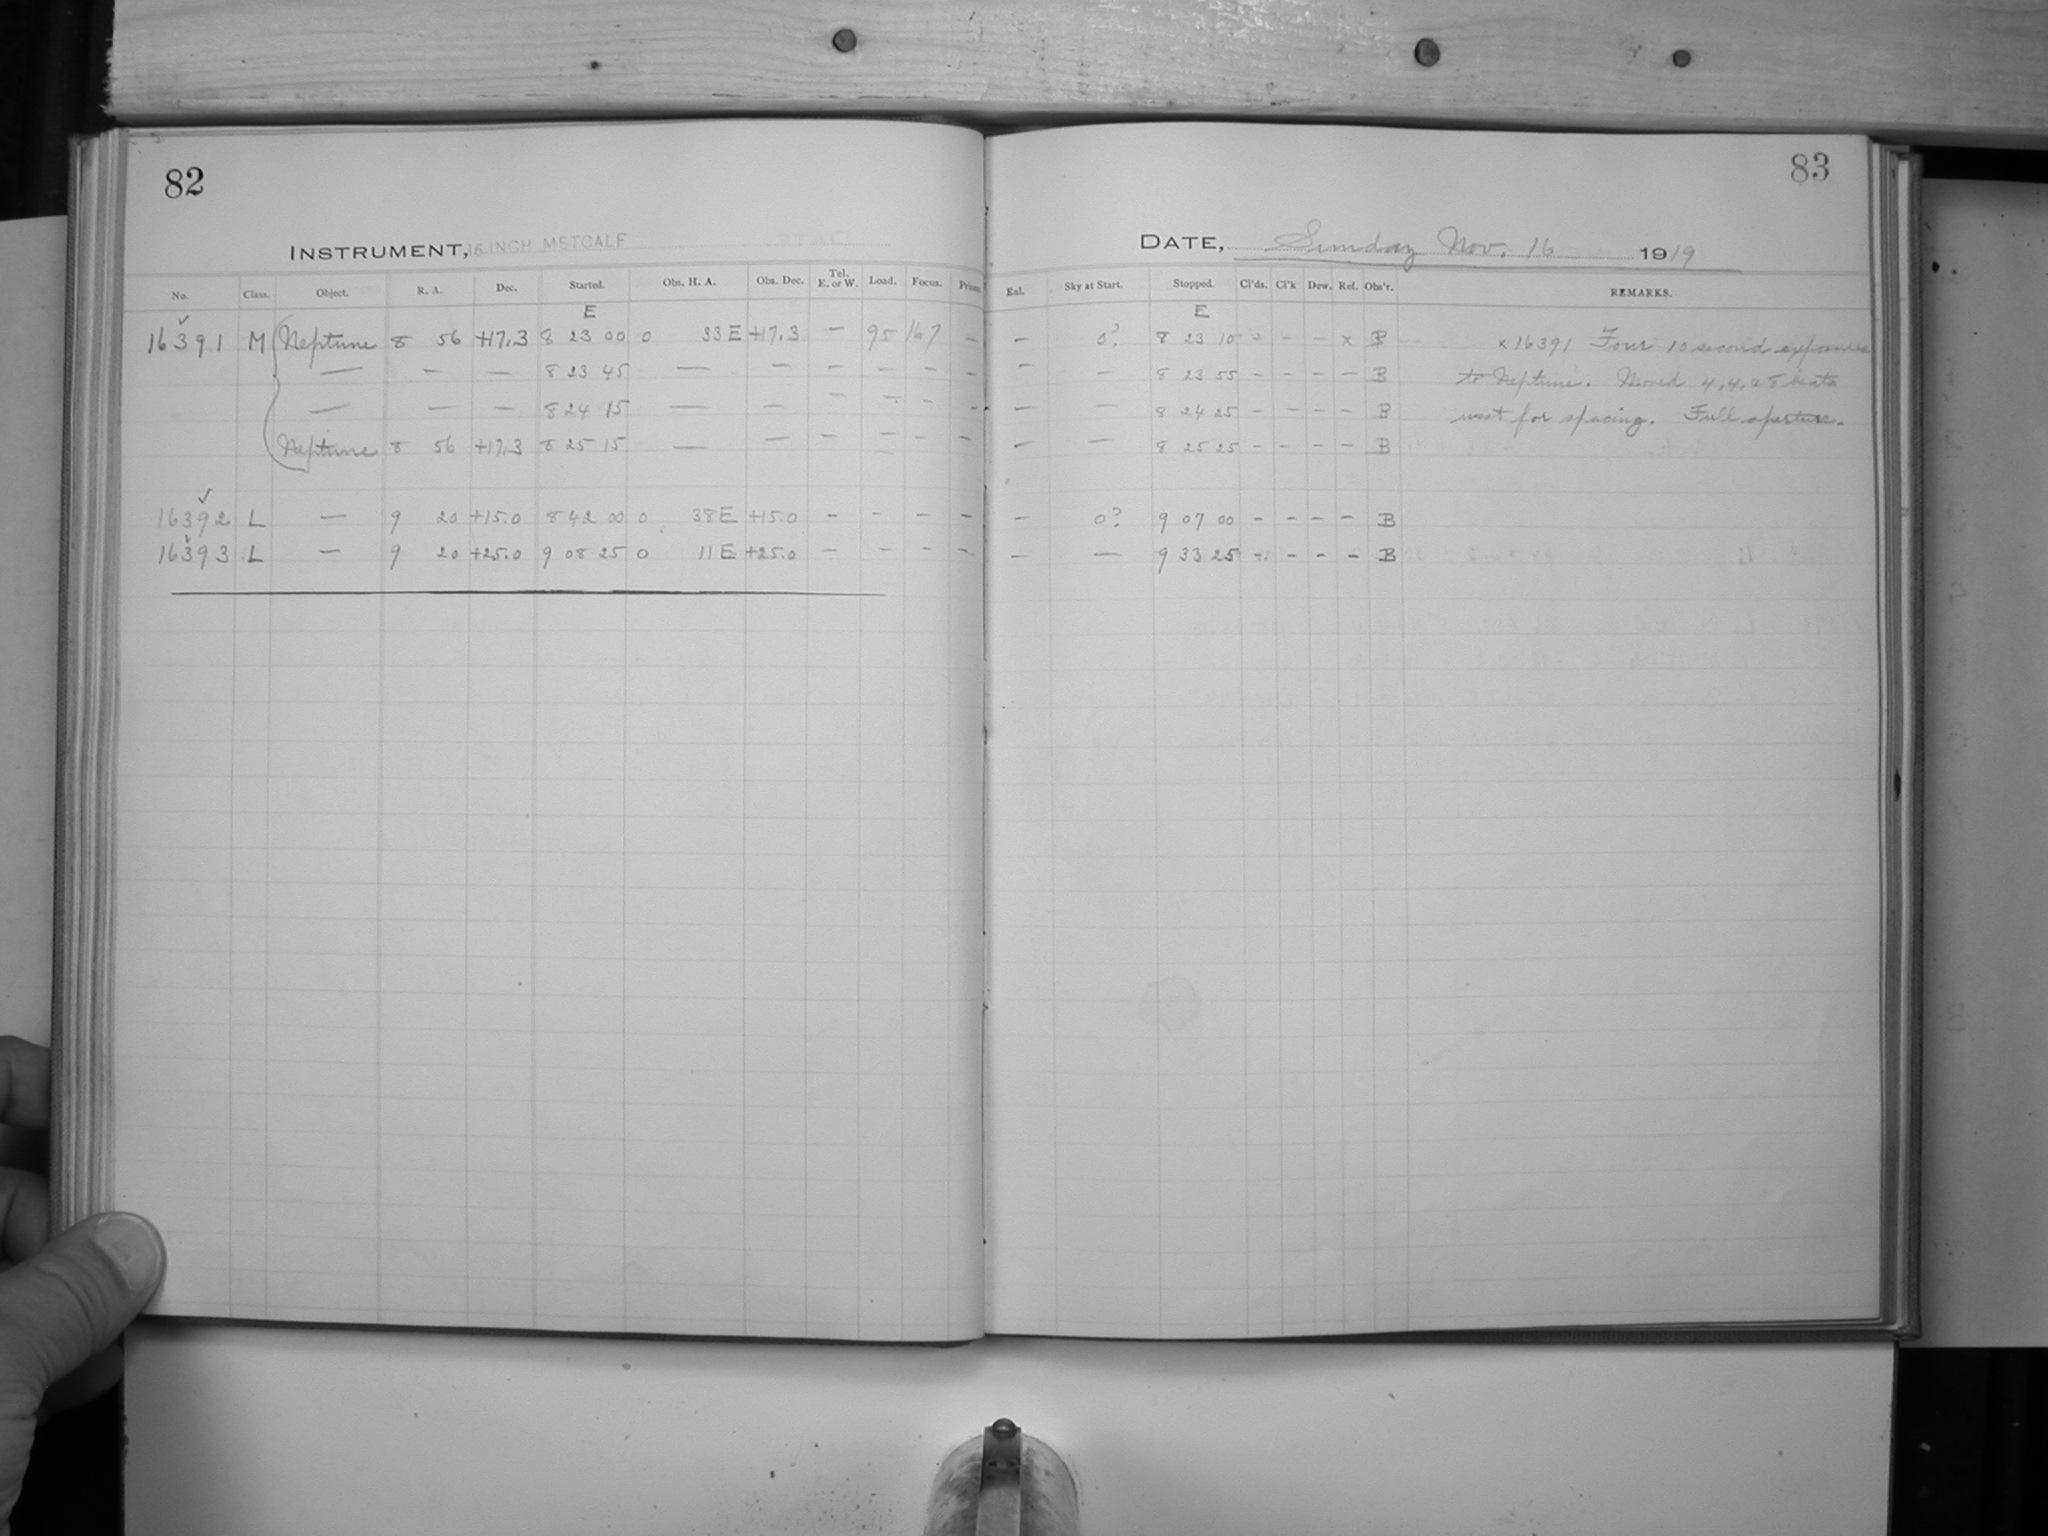 82
INSTRUMENT, 16-INCH METCALF
No. Class. Object. R. A. Dec. Started. Obs. H. A. Obs. Dec. Tel. E. or W. Load. Focus. Prism.
E
16391 M Neptune 8 56 +17.3 8 23 00 0 33 E +17.3 — 95 167 —
— — — 8 23 45 — — — — — —
— — — 8 24 15 — — — — — —
Neptune 8 56 +17.3 8 25 15 — — — — — —
16392 L — 9 20 +15.0 8 42 00 0 38 E +15.0 — — — —
16393 L — 9 20 +25.0 9 08 25 0 11 E +25.0 — — — —
83
DATE, Sunday Nov. 16 1919
Eal. Sky at Start. Stopped. Cl'ds. Cl'k Dew. Ref. Obs'r. REMARKS.
E
— 0? 8 23 10 — — — x B x 16391 Four 10 second exposures
— — 8 23 55 — — — — B to Neptune. Moved 4, 4, 8 beats
— — 8 24 25 — — — — B west for spacing. Full aperture.
— — 8 25 25 — — — — B
— 0? 9 07 00 — — — — B
— — 9 33 25 — — — — B